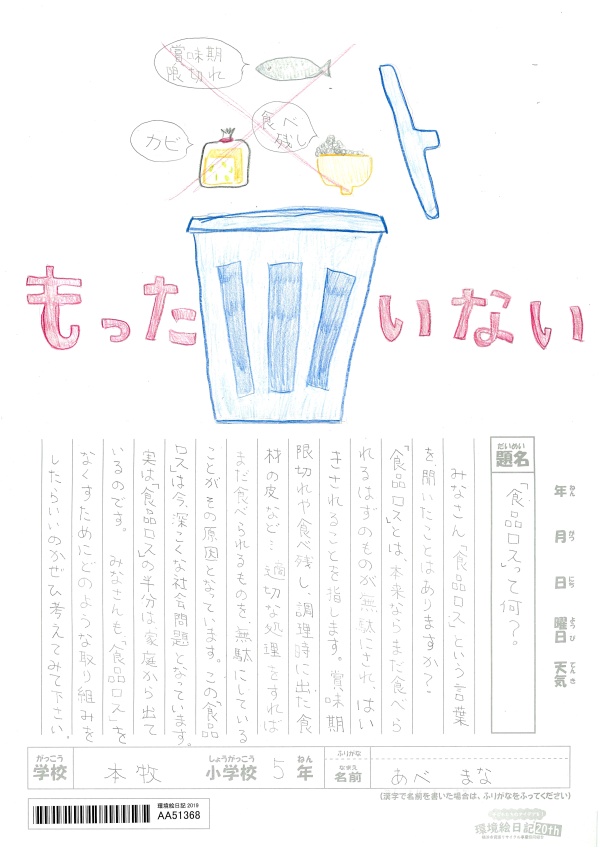 賞味期
限切れ
食べ
残し
カビ
もったいない
だいめい
題名
「食品ロス」って何？
年 ねん
月 がつ
日 にち
曜日 ようび
天気 てんき
みなさん、「食品ロス」という言葉
を、聞いたことはありますか？
「食品ロス」とは、本来ならまだ食べら
れるはずのものが無駄にされ、はい
きされることを指します。賞味期
限切れや食べ残し、調理時に出た食
材の皮など… 適切な処理をすれば
まだ食べられるものを、無駄にしている
ことがその原因となっています。この「食品
ロス」は今、深こくな社会問題となっています。
実は「食品ロス」の半分は、家庭から出て
いるのです。 みなさんも、「食品ロス」を
なくすためにどのような取り組みを
したらいいのかぜひ考えてみて下さい。
がっこう
学校
本牧
しょうがっこう
小学校
5
ねん
年
ふりがな
なまえ
名前
あべ まな
(漢字で名前を書いた場合は、ふりがなをふってください)
環境絵日記 2019
AA51368
環境絵日記20th